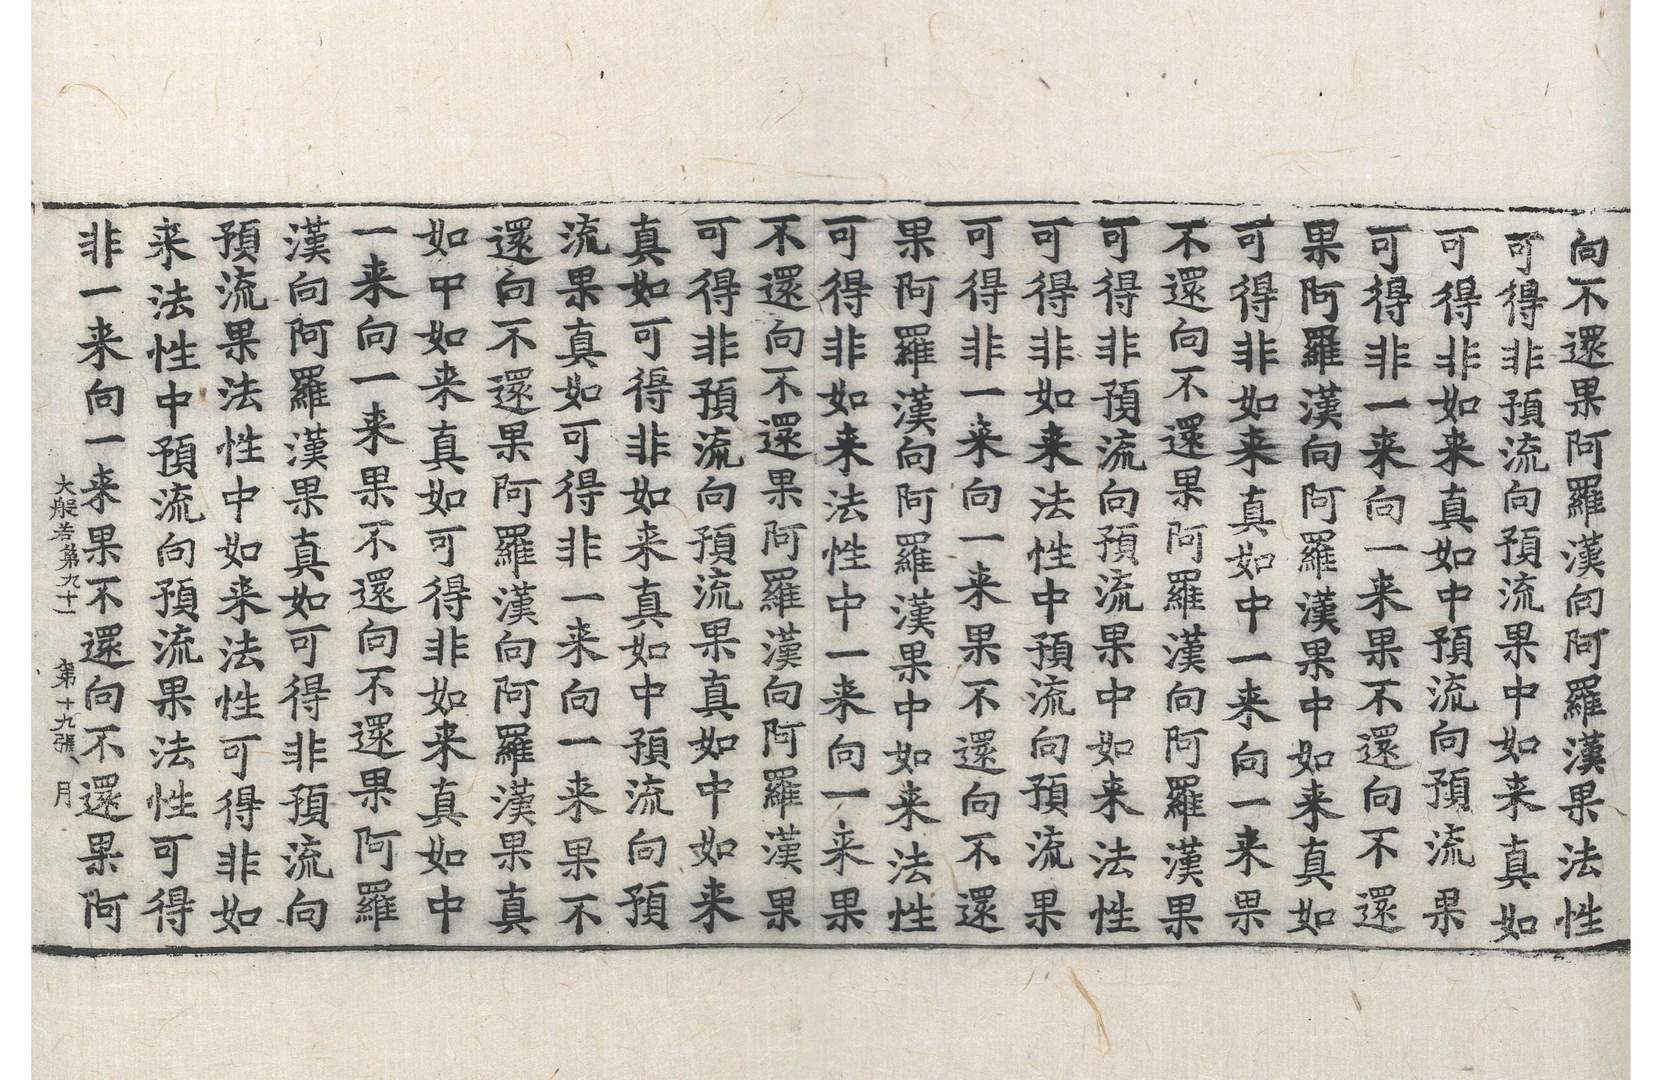 向不還果阿羅漢向阿羅漢果法性
可得非預流向預流果中如来真如
可得非如来真如中預流向預流果
可得非一来向一来果不還向不還
果阿羅漢向阿羅漢果中如来真如
可得非如来真如中一来向一来果
不還向不還果阿羅漢向阿羅漢果
可得非預流向預流果中如来法性
可得非如来法性中預流向預流果
可得非一来向一来果不還向不還
果阿羅漢向阿羅漢果中如来法性
可得非如来法性中一来向一来果
不還向不還果阿羅漢向阿羅漢果
可得非預流向預流果真如中如来
真如可得非如来真如中預流向預
流果真如可得非一来向一来果不
還向不還果阿羅漢向阿羅漢果真
如中如来真如可得非如来真如中
一来向一来果不還向不還果阿羅
漢向阿羅漢果真如可得非預流向
預流果法性中如来法性可得非如
来法性中預流向預流果法性可得
非一来向一来果不還向不還果阿
大般若第九十一 第十九張 月